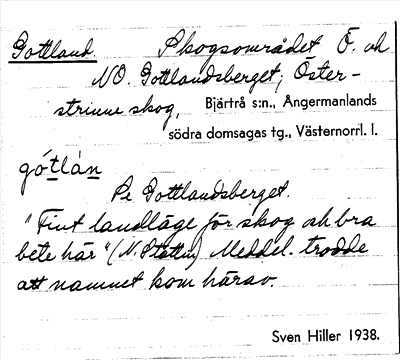 Gottland Skogsområdet Ö. och
NO. Gottlandsberget, Öster-
strinne skog, Bjärtrå s:n., Ångermanlands
södra domsagas tg., Västernorrl. l.
gó̱tlàn̲
Pe Gottlandsberget.
"Fint landläge för skog och bra
bete här" (N. Stattin) Meddel. trodde
att namnet kom härav.
Sven Hiller 1938.